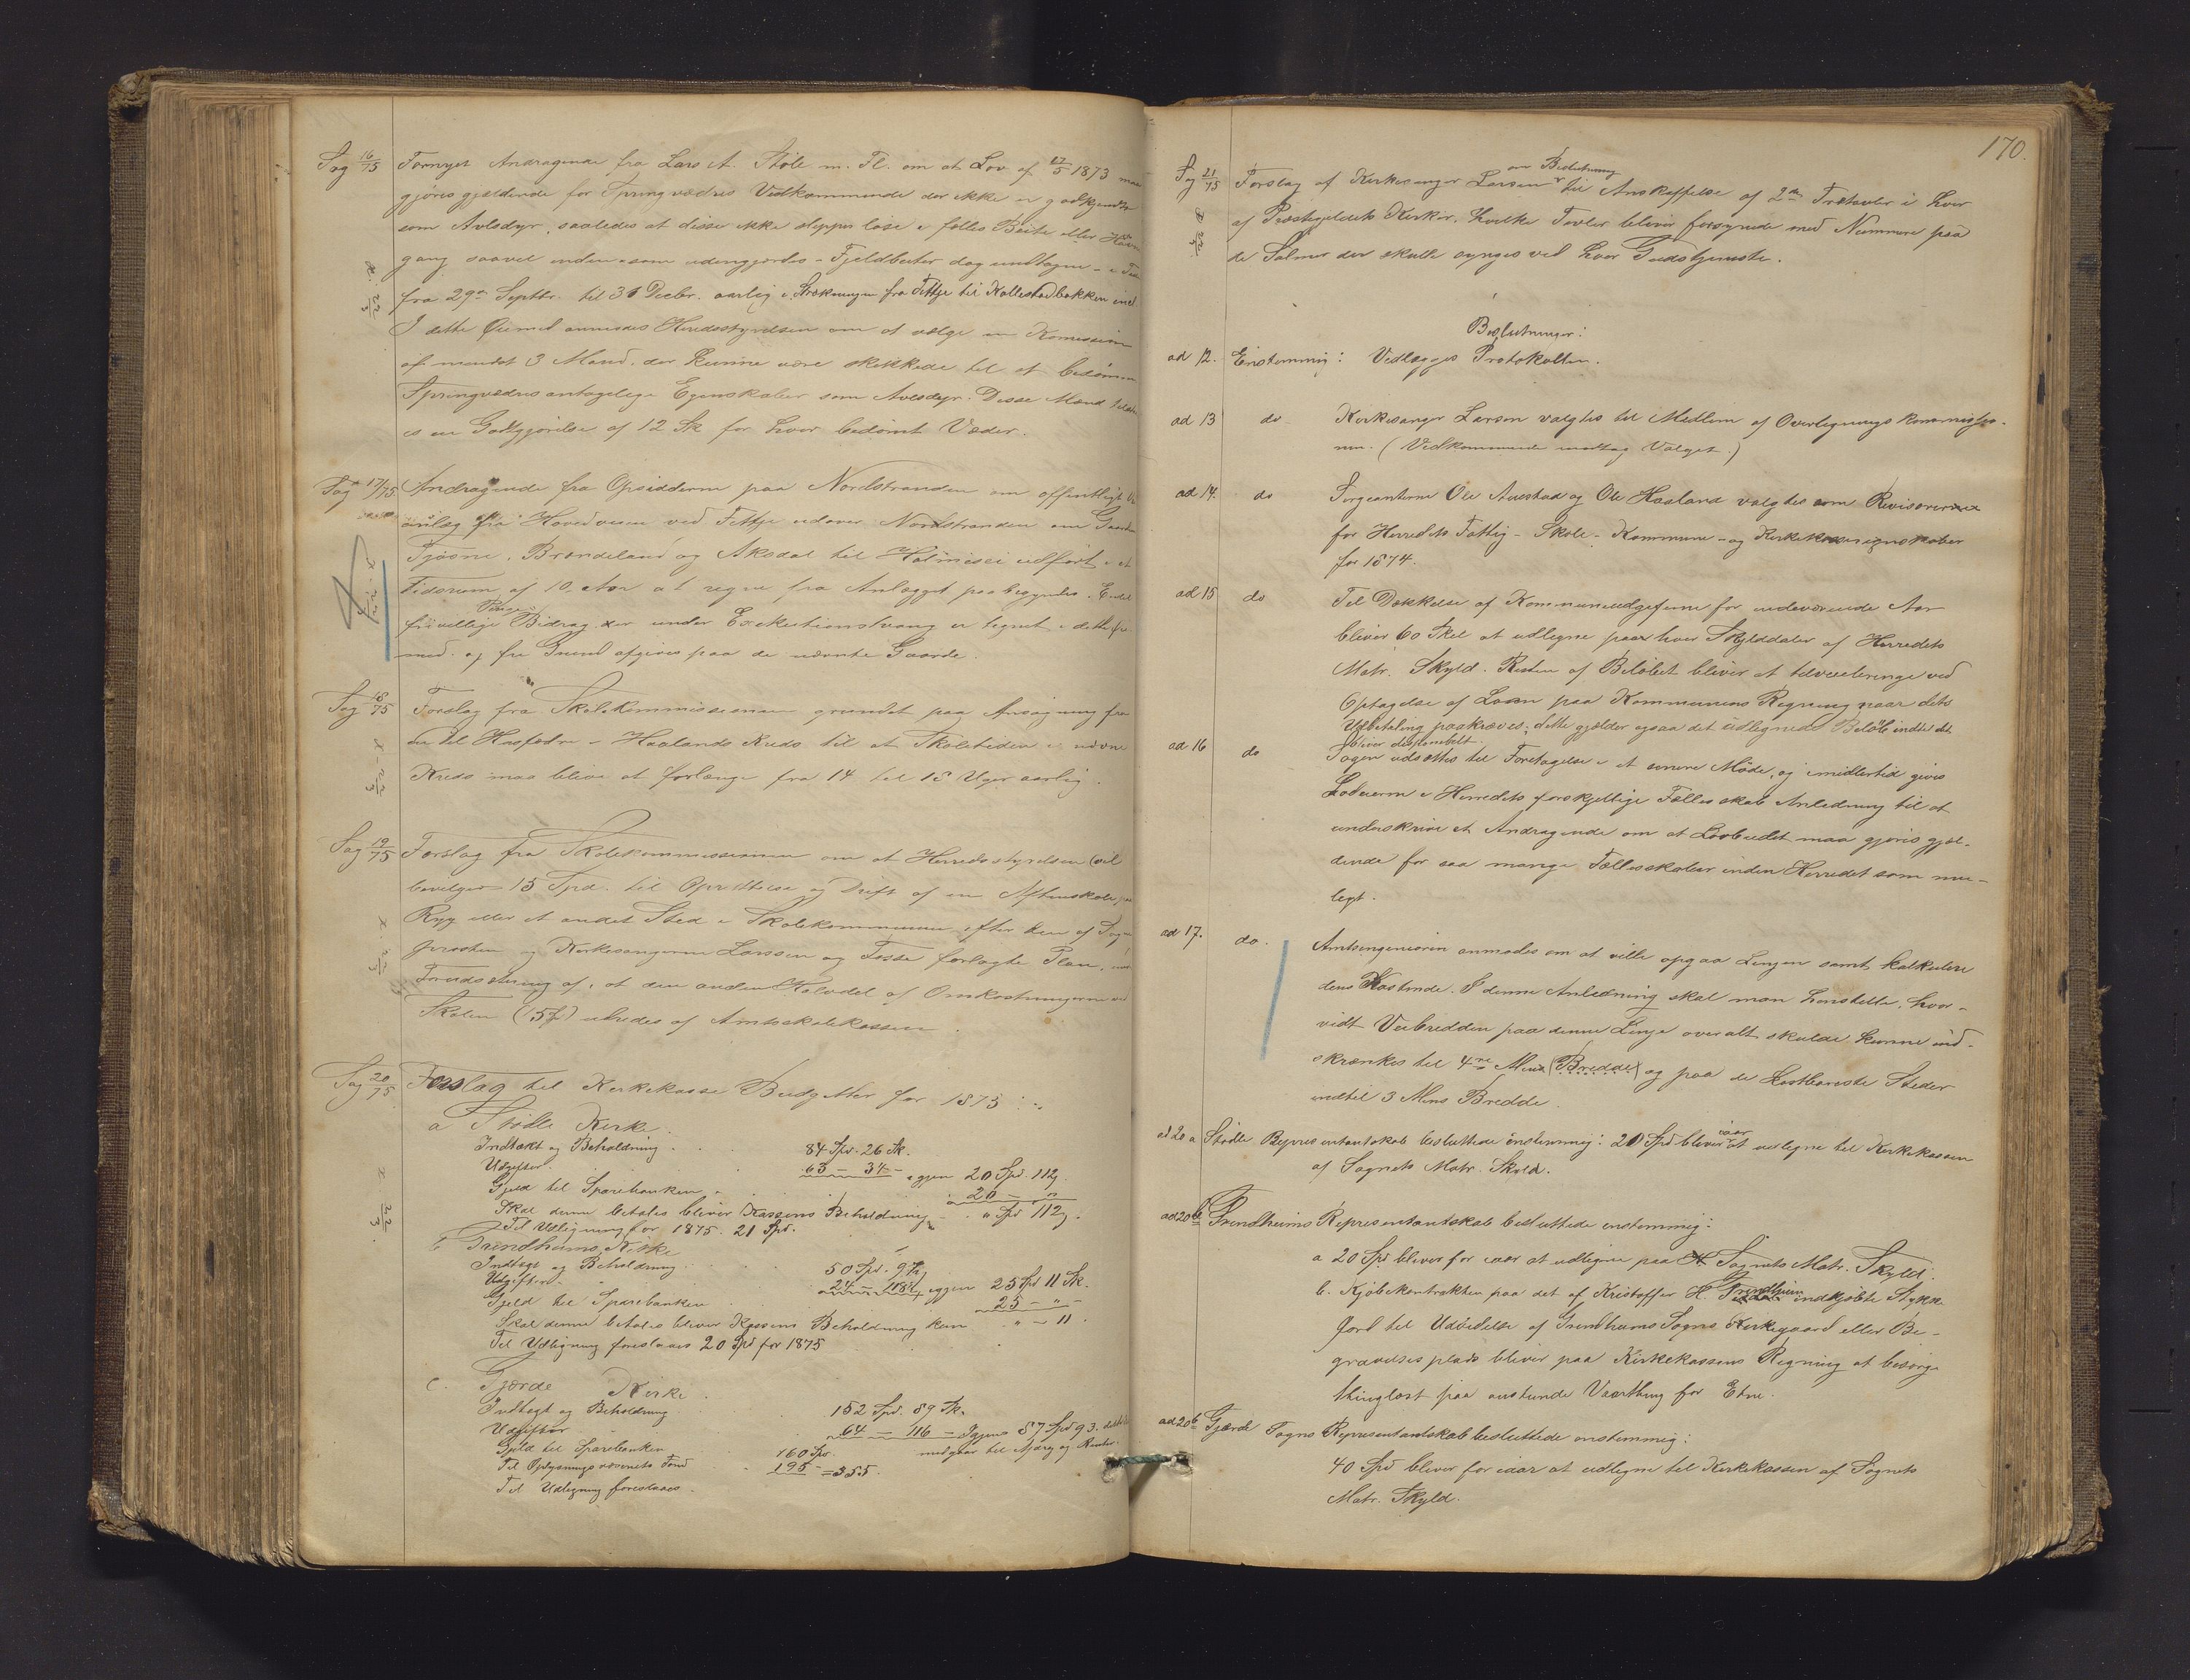 Sag 16/75 Fornyet Andragende fra Lars A. Støle m. Fl. om at Lov af 17/5 1873 maa
gjøres gjældende for Springvædres Vedkommende der ikke er godkjendte
som Avlsdyr, saaledes at disse ikke slippes løse i fælles Beite eller Havne
gang saavel inden- som udengjerdes - Fjeldbeiter dog undtagne - i Tiden
fra 29de Septbr. til 31 Decbr. aarlig i Strækningen fra Fettje til Kallestadbakken incl.
I dette Øiemed anmodes Herredsstyrelsen om at vælge en Komission
af mindst 3 Mænd, der kunne være skikkede til at bedømme
Springvædres antagelige Egenskaber som Avlsdyr. Disse Mænd
es en Godtgjørelse af 12 Sk for hver bedømt Væder.
Sag 17/75 Andragende fra Opsidderne paa Nordstranden om offentligt
anlæg fra Hovedveien ved Fettje udover Nordstranden om Gaardene
Tjøsne, Brændeland og Aksdal til udført i et
Tidsrum af 10 Aar at regne fra Anlægget paabegyndes. Endel
Penge
frivillige Bidrag der under Exekutionstvang er tegnet i dette
med. og fri Grund afgives paa de nævnte Gaarde.
Sag 18/75 Forslag fra Skolekommissionen grundet paa Ansøgning fra
en Del Husfædre i Haalands Kreds til at Skoletiden i nævnte
Kreds maa blive at forlænge fra 14 til 18 Uger aarlig.
Sag 19/75 Forslag fra Skolekommissionen om at Herredsstyrelsen vil
bevilger 15 Spd. til Oprettelse og Drift af en Aftenskole paa
Ryg eller et andet Sted i Skolekommunen efter den af Sogne
præsten og Kirkesangerne Larssen og Fosse forlagte Plan, under
Forudsætning af, at den anden Halvdel af Omkostningerne ved
Skolen (15 ) udredes af Amtsskolekassen.
Sag 20/75 Forslag til Kirkekasse Budgetter for 1875:
a Stødle Kirke.
Indtægt og Beholdning . . 84 Spd. 26 Sk.
Udgifter 63 - 34 - igjen 20 Spd. 112
Gjeld til Sparebanken 20 - "
Skal denne betales bliver Kassens Beholdning - " Spd 112
Til Udligning for 1875. 21 Spd.
b Grindheims Kirke
Indtægt og Beholdning 50 Spd. 9
Udgifter 24 - 118 igjen 25 Spd 11 Sk.
Gjeld til Sparebanken 25 - " -
Skal denne betales bliver Kassens Beholdning kun " - 11.
Til Udligning foreslaaes 20 Spd for 1875
c. Gjerde Kirke.
Indtægt og Beholdning 152 Spd. 89 Sk.
Udgifter 64 - 116 - Igjen 87 Spd 93.
Gjeld til Sparebanken 160 Spd. medgaar til Afdrag og Renter.
Til Oplysningsvæsenets Fond 195 - = 355.
Til Udligning foreslaaes.
170.
om Beslutning
Sag 21/75 Forslag af Kirkesanger Larsen til Anskaffelse af 2de Trætavler i hver
af Præstegjeldets Kirker, hvilke Tavler bliver forsynede med Numere paa
de Salmer der skulle synges ved hver Gudstjeneste.
Beslutninger:
ad 12. Enstemmig: Vedlægges Protokollen.
ad 13 do Kirkesanger Larsen valgtes til Medlem af Overligningskommissio-
nen. (Vedkommende modtog Valget.)
ad 14. do Sergeanterne Ole Austad og Ole Haaland valgtes som Revisorer
for Herredets Fattig- Skole- Kommune- og Kirkekasseregnskaber
for 1874.
ad 15 do Til Dækkelse af Kommuneudgifterne for indeværende Aar
bliver 60 Skil at udlegne paa hver Skylddaler af Herredets
Matr. Skyld. Resten af Beløbet bliver at tilveiebringe ved
Optagelse af Laan paa Kommunens Regning naar dets
Udbetaling paakræves; dette gjælder ogsaa det udlignede Beløb indtil det
bliver disponibelt.
ad 16 do Sagen udsættes til Foretagelse i et senere Møde, og imidlertid gives
Lodeierne i Herredets forskjellige Fællesskab Anledning til at
underskrive et Andragende om at Lovbudet maa gjøres gjæl-
dende for saa mange Fællesskaber inden Herredet som mu-
ligt.
ad 17. do. Amtsingeniøren anmodes om at ville opgaa Linjen samt kalkulere
dens Kostende. I denne Anledning skal man henstille, hvor-
vidt Veibredden paa denne Linje overalt skulde kunne ind-
skrænkes til 4re Alens (Bredde) og paa de kostbareste Steder
indtil 3 Alens Bredde.
iaar
ad 20 a Stødle Representantskab besluttede enstemmig: 20 Spd bliver at udlegne til Kirkekassen
af Sognets Matr. Skyld.
ad 20 b Grindheims Representantskab besluttede enstemmig:
a 20 Spd bliver for iaar at udligne paa Sognets Matr. Skyld.
b. Kjøbekontrakten paa det af Kristoffer H. Grindheim indkjøbte Stykke
Jord til Udvidelse af Grindheims Sogns Kirkegaard eller Be-
gravelsesplads bliver paa Kirkekassens Regning at besørge
thinglæst paa anstundende Vaarthing for Etne.
ad 20 c Gjerde Sogns Representantskab besluttede enstemmig:
40 Spd bliver for iaar at udlegne til Kirkekassen af Sognets
Matr. Skyld.